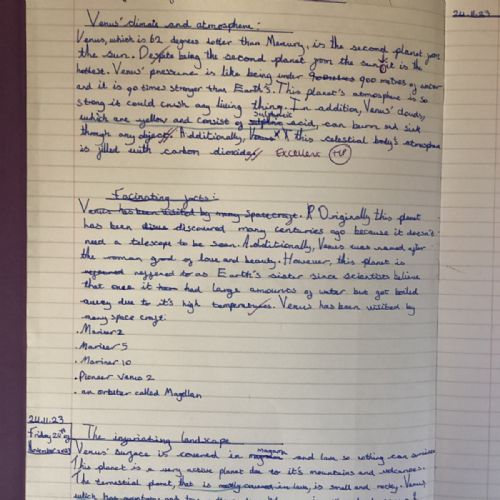 24.11.23
Venus' climate and atmosphere:
Venus, which is 62 degrees hotter than Mercury, is the second planet from
the sun. Despite being the second planet from the sun, it is the
hottest. Venus' pressure is like being under 900 metres of water
and it is 90 times stronger than Earth's. This planet's atmosphere is so
strong it could crush any living thing. In addition, Venus' clouds,
sulphuric
which are yellow and consist of acid, can burn and sink
through any object. Additionally, Venus this celestial body's atmosphere
is filled with carbon dioxide. Excellent
Facinating facts:
Venus has been visited by many spacecraft. Originally this planet
has been discovered many centuries ago because it doesn't
need a telescope to be seen. Additionally, Venus was named after
the roman god of love and beauty. However, this planet is
reffered to as Earth's sister since scientists believe
that once it had large amounts of water but got boiled
away due to it's high temperatures. Venus has been visited by
many space craft:
• Mariner 2
• Mariner 5
• Mariner 10
• Pioneer Venus 2
• an orbiter called Magellan
24.11.23
Friday 24th of
November 2023
The infuriating landscape
magma
Venus' surface is covered in and lava so nothing can survive
This planet is a very active planet due to it's mountains and volcanoes.
The terrestrial planet, that is mostly covered in lava, is small and rocky. Venus,